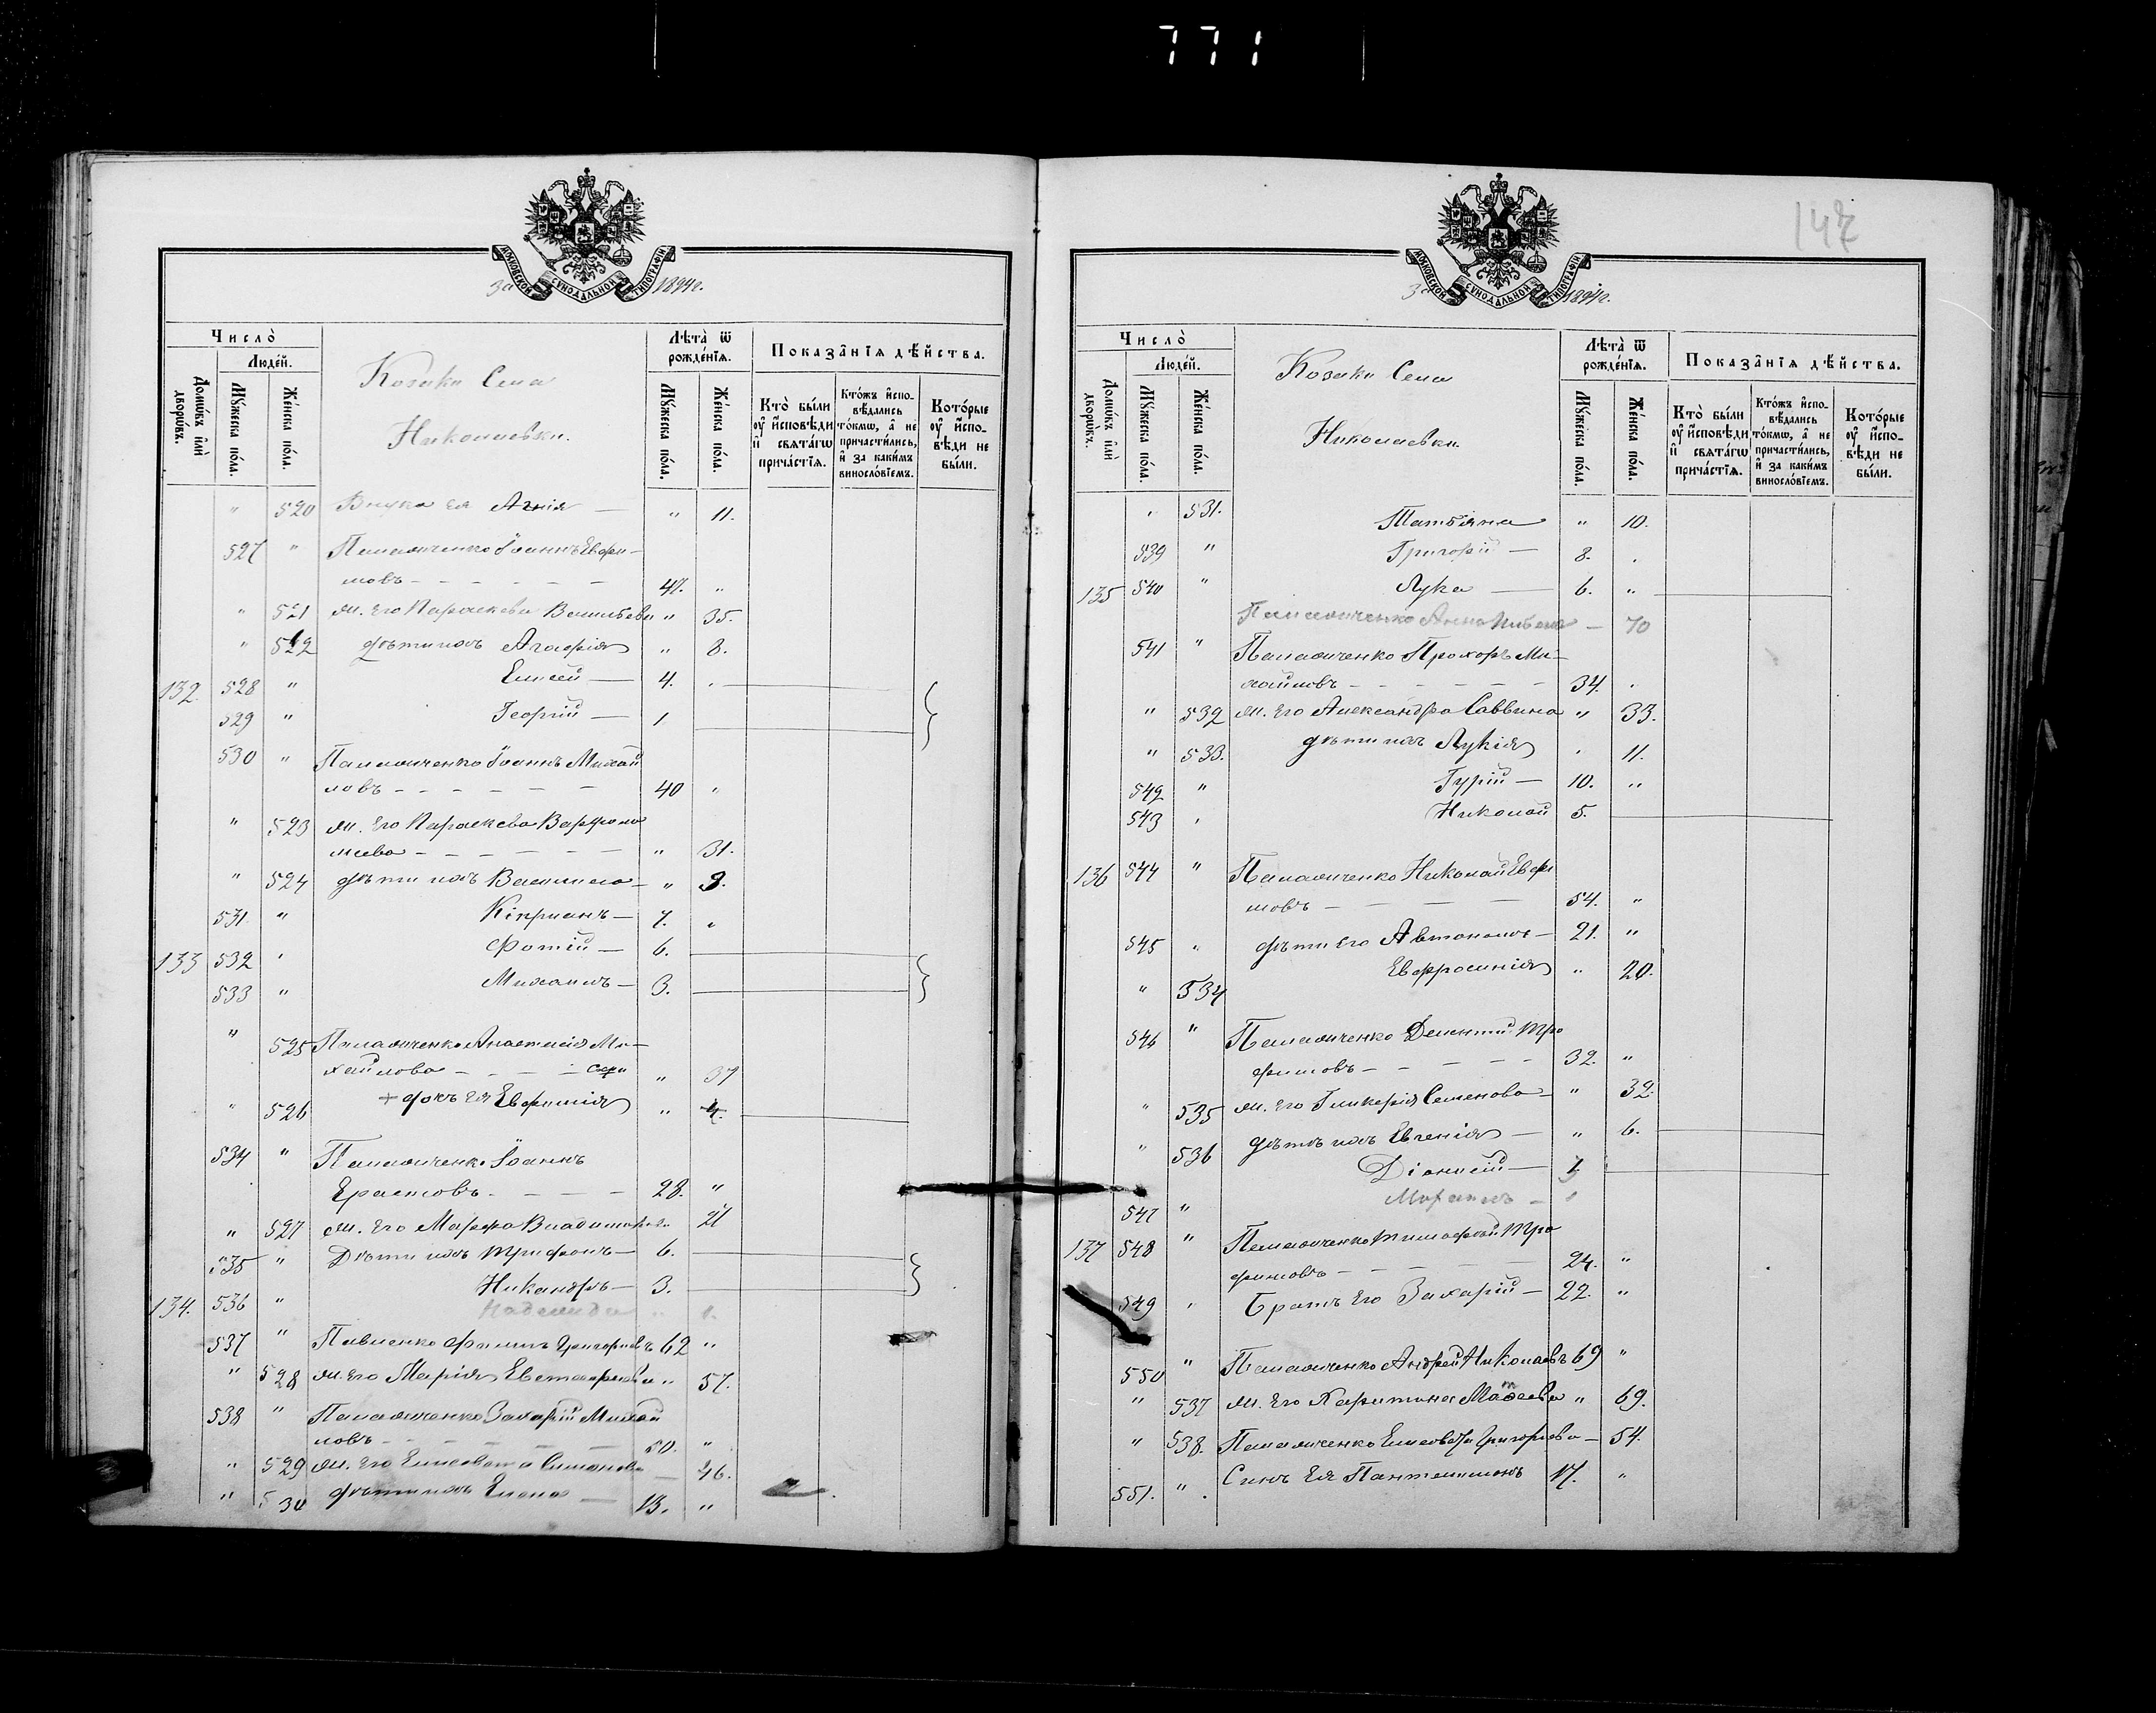 771
147
МОСКОВСКОЙ СѴНОДАЛЬНОЙ ТИПОГРАФІИ
За 1894 г.
Число̀
Людей.
Домѡ́въ и҆лѝ дворѡ́въ.
Мꙋ́жеска по́ла.
Же́нска по́ла.
Козаки Села
Николаевки.
Лѣта̀ ѿ рожде́нїѧ.
Мꙋ́жеска по́ла.
Же́нска по́ла.
Показа̂нїѧ дѣ́йства.
Кто̀ бы́ли оу҆ и҆сповѣди и҆ свѧта́гѡ прича́стїѧ.
Кто́жъ и҆спо-вѣ́дались то́кмѡ, а҆ не причасти́лись, и҆ за каки́мъ винословїемъ.
Кото́рые оу҆ и҆спо-вѣди не бы́ли.
" 520 Внука ея Агнія — " 11.
527 " Паламиченко Іоаннъ Евфи-
мовъ - - - - - - 47. "
" 521 ж. его Параскева Васильева " 35.
" 522 дѣти ихъ Агафія " 8.
132. 528 " Елисей — 4. "
529 " Георгій — 1
530 " Паламиченко Іоаннъ Михай
ловъ - - - - - - 40 "
" 523 ж. его Параскева Варфоло
меева - - - - - - " 31.
" 524 дѣти ихъ Василиса — " 9.
531. " Кипріанъ — 7. "
133 532 " Фотій — 6.
533 " Михаилъ — 3.
" 525 Паламиченко Анастасія Ми-
хайлова - - - - " 37
" 526 + дочь ея Евфимія " 4.
534 " Паламиченко Іоаннъ
Ерастовъ - - - - 28. "
" 527 ж. его Марфа Владимірова 21
535 " Дѣти ихъ Трифонъ — 6.
Никандръ — 3.
134. 536 " Надежда
537 " Павленко Филипъ Григорьевъ 62 "
" 528 ж. его Марія Евстафіева " 57.
538 " Паламиченко Захарій Михай
ловъ - - - - - - 50. "
" 529 ж. его Елисавета Симонова — 46.
" 530 дѣти ихъ Елена — 13. "
МОСКОВСКОЙ СѴНОДАЛЬНОЙ ТИПОГРАФІИ
За 1894 г.
Число̀
Людей.
Домѡ́въ и҆лѝ дворѡ́въ.
Мꙋ́жеска по́ла.
Же́нска по́ла.
Козаки Села
Николаевки.
Лѣта̀ ѿ рожде́нїѧ.
Мꙋ́жеска по́ла.
Же́нска по́ла.
Показа̂нїѧ дѣ́йства.
Кто̀ бы́ли оу҆ и҆сповѣди и҆ свѧта́гѡ прича́стїѧ.
Кто́жъ и҆спо-вѣ́дались то́кмѡ, а҆ не причасти́лись, и҆ за каки́мъ винословїемъ.
Кото́рые оу҆ и҆спо-вѣди не бы́ли.
" 531. Татьяна " 10.
539 " Григорій — 8. "
135 540 " Лука — 6. "
Паламиченко Анна — 70
541 " Паламиченко Прохоръ Ми-
хайловъ - - - - - - 34. "
" 532 ж. его Александра Саввина " 33.
" 533. дѣти ихъ Лукія " 11.
542 " Гурій — 10. "
543 " Николай 5.
136 544 " Паламиченко Николай Евфи
мовъ - - - - 54. "
545 " дѣти его Автономъ — 21. "
" 534 Евфросинія " 20.
546 " Паламиченко Дементій Тро
фимовъ - - - - - 32. "
" 535 ж. его Гликерія Семенова — " 32.
" 536 дѣти ихъ Евгенія — " 6.
Діонисій — 1
547 "
137 548 " Паламиченко Тимофей Тро
фимовъ - - - - - 24. "
549 " Братъ его Захарій — 22. "
550 " Паламиченко Андрей Николаевъ 69 "
" 537 ж. его Харитина Матѳеева " 69.
" 538. Паламиченко Елисавета Григорьева — 54.
551. " Сынъ ея Пантелеимонъ 17. "